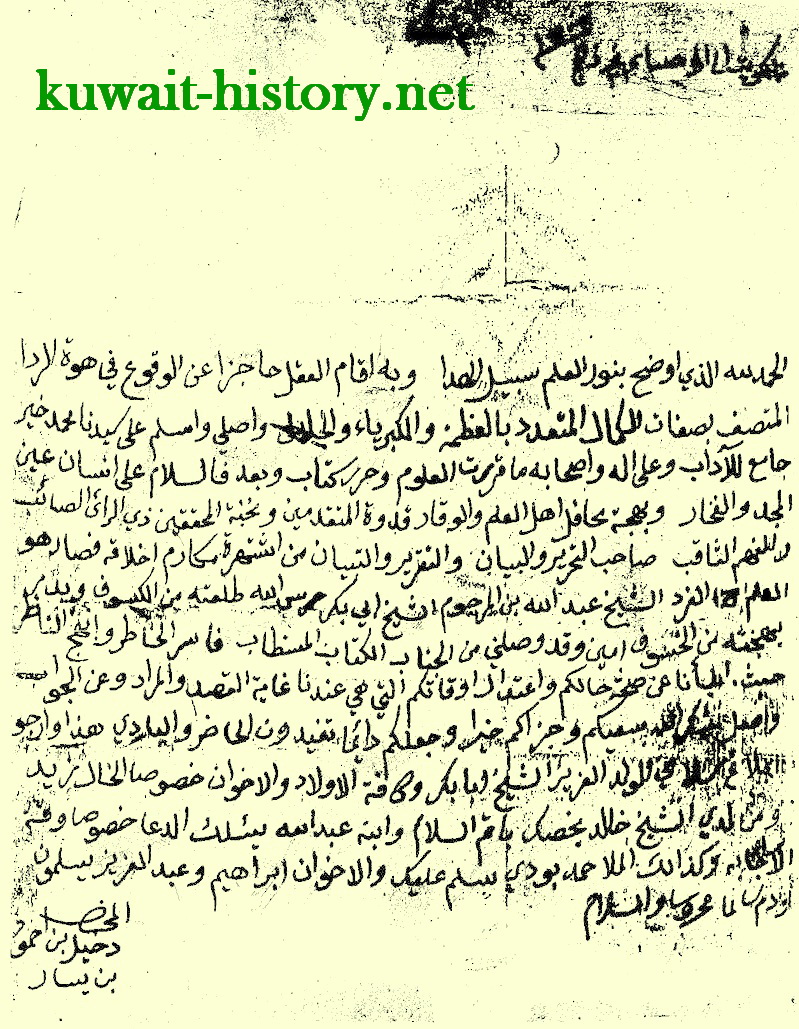 kuwait-history.net
الحمد لله الذي اوضح بنور العلم سبيل الهدا وبه اقام العقل حاجزا عن الوقوع في هوة الردا
المتصف بصفات الكمال المتعدد بالعظمة والكبرياء والجلال واصلي واسلم على سيدنا محمد خير
جامع للآداب وعلى اله واصحابه ما قريت العلوم وحرر كتاب وبعد فالسلام على انسان عين
المجد والفخار وبهجة محافل اهل العلم والوقار قدوة المتقدمين ونخبة المحققين ذي الرائ الصائب
والفهم الثاقب صاحب التحرير والبيان والتقرير والتبيان من اشتهرة مكارم اخلاقه فصار هو
العلم الفرد الشيخ عبد الله بن المرحوم الشيخ ابي بكر حرس الله طلعته من الكسوف وبدر
بهجته من الخسوف امين وقد وصلني من الجناب الكتاب المستطاب فاسر الخاطر وابهج الناظر
حيث انبأنا عن صحة حالكم واعتدال اوقاتكم التي هي عندنا غاية القصد والمراد وعن الجواب
واصل شكر الله سعيكم وجزاكم خيرا وجعلكم دائما تفيدون الحاضر والبادي هذا وارجو
ابلاغ سلامي للولد العزيز الشيخ ابا بكر وكافة الاولاد والاخوان خصوصا الخال زيد
ومن لدي الشيخ خالد يخصك باتم السلام وابنه عبد الله يسئلك الدعا خصوصا وقت
الاجابه وكذالك الملا حمد بودي يسلم عليك والاخوان ابراهيم وعبد العزيز يسلمون
ودم سالما محروسا والسلام
المخلص
دخيل بن حمود
بن يسار